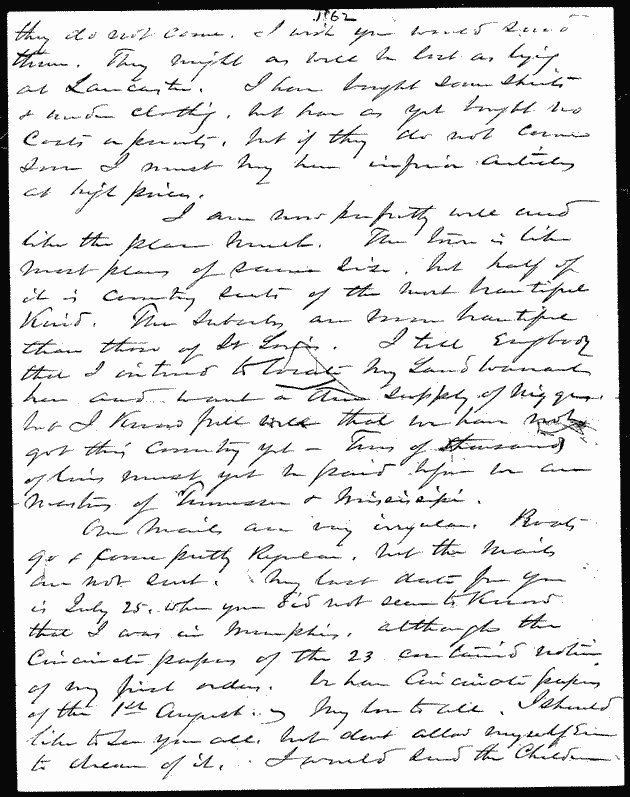 1862
they do not come. I wish you would send
them. They might as well be lost as lying
at Lancaster. I have bought some shirts
& under clothing, but have as yet bought no
Coats or pants, but if they do not come
soon I must buy here inferior articles
at high prices.
I am now perfectly well and
like the place much. The town is like
most places of same size, but half of
it is country seats of the most beautiful
Kind. The suburbs are more beautiful
than those of St Louis. I tell Everybody
that I intend to locate my Land Warrants
here and want a supply of niggers.
but I Know full well that we have not
got this Country yet - Tens of thousands
of lives must yet be paid before we are
masters of Tennessee & Mississippi.
Our Mails are very irregular. Boats
go & come pretty Regular, but the Mails
are not sent. My last date from you
is July 25, when you did not seem to Know
that I was in Memphis, although the
Cincinnati papers of the 23 contained notice
of my first orders. We have Cincinnati papers
of the 1st August. My love to all. I should
like to see you all, but dont allow myself Even
to dream of it. I would send the Children